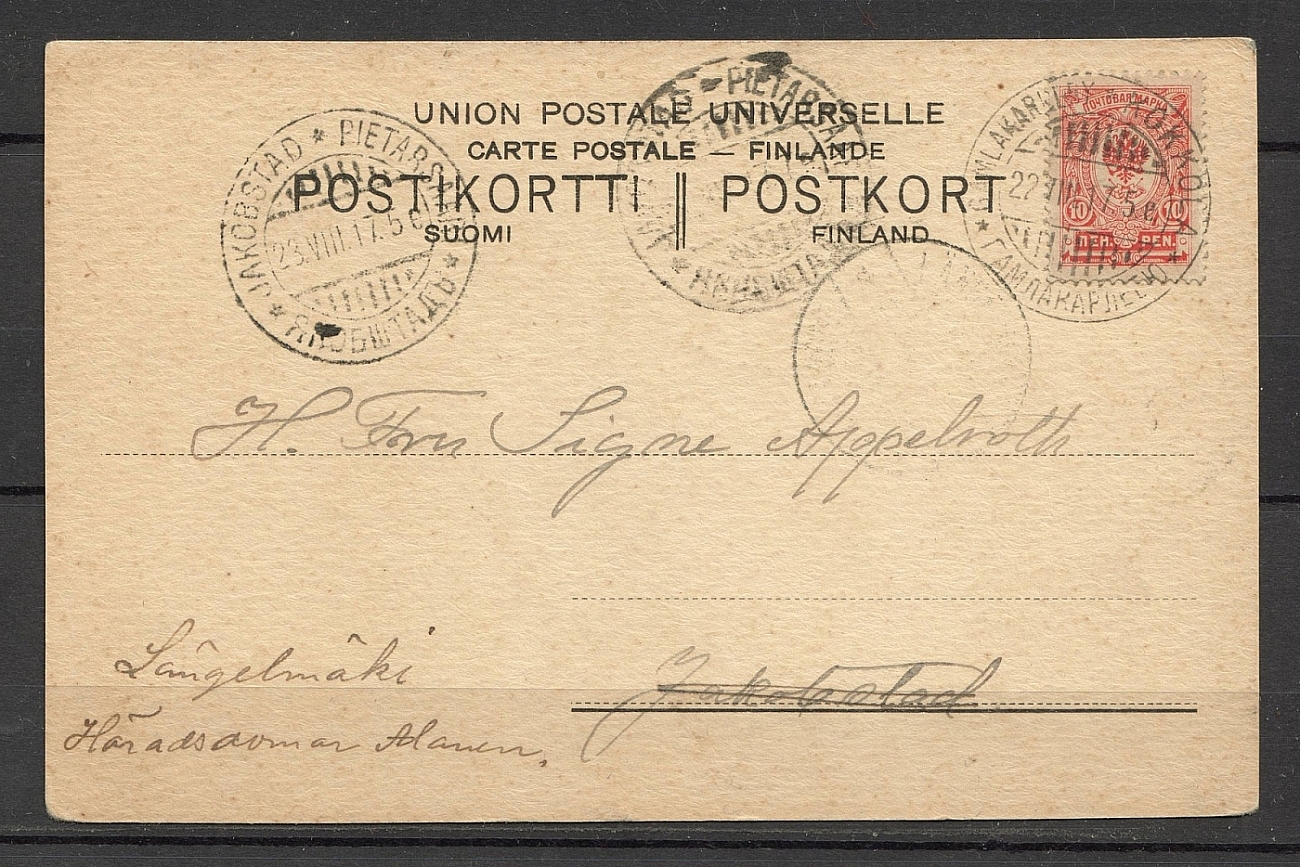 UNION POSTALE UNIVERSELLE
CARTE POSTALE — FINLANDE
POSTIKORTTI || POSTKORT
SUOMI FINLAND
JAKOBSTAD * PIETARSAARI * ЯКОБШТАДЪ *
23.VIII.17.5 e
PIETARSAARI
GAMLAKARLEBY * KOKKOLA * ГАМЛАКАРЛЕБЮ *
22.VIII.17.5 e
ПОЧТОВАЯ МАРКА
10 10
ПЕН. PEN.
H. Fru Signe Appelroth
Jakobstad
Längelmäki
Häradsdomar Alanen,